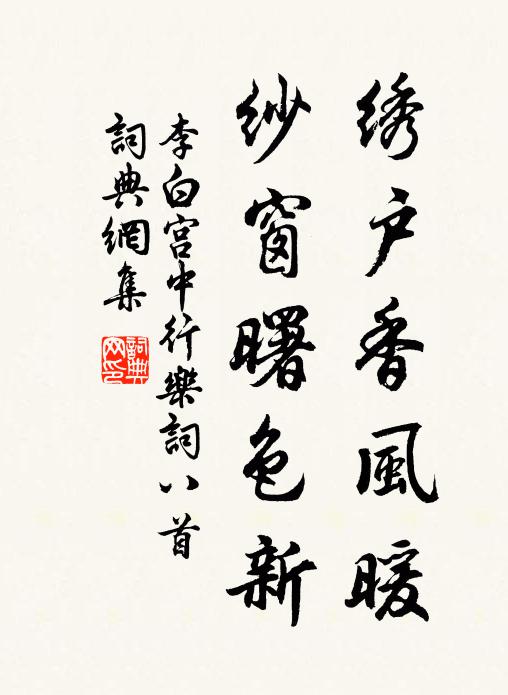 绣户香風暖
紗窗曙色新
李白宫中行樂詞八首
詞典網集
詞典網印